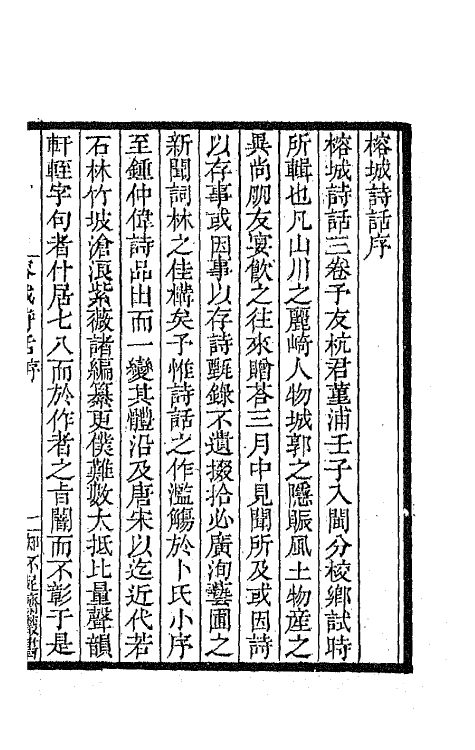 榕城詩話序
榕城詩話三卷予友杭君堇浦壬子入閩分校鄉試時
所輯也凡山川之麗崎人物城郭之隱賑風土物産之
異尚朋友宴飲之往來贈荅三月中見聞所及或因詩
以存事或因事以存詩甄錄不遺掇拾必廣洵藝圃之
新聞詞林之佳構矣予惟詩話之作濫觴於卜氏小序
至鍾仲偉詩品出而一變其體沿及唐宋以迄近代若
石林竹坡滄浪紫薇諸編纂更僕難數大抵比量聲韻
軒輊字句者什居七八而於作者之旨闇而不彰于是
榕城詩話序
一
知不足齋叢書